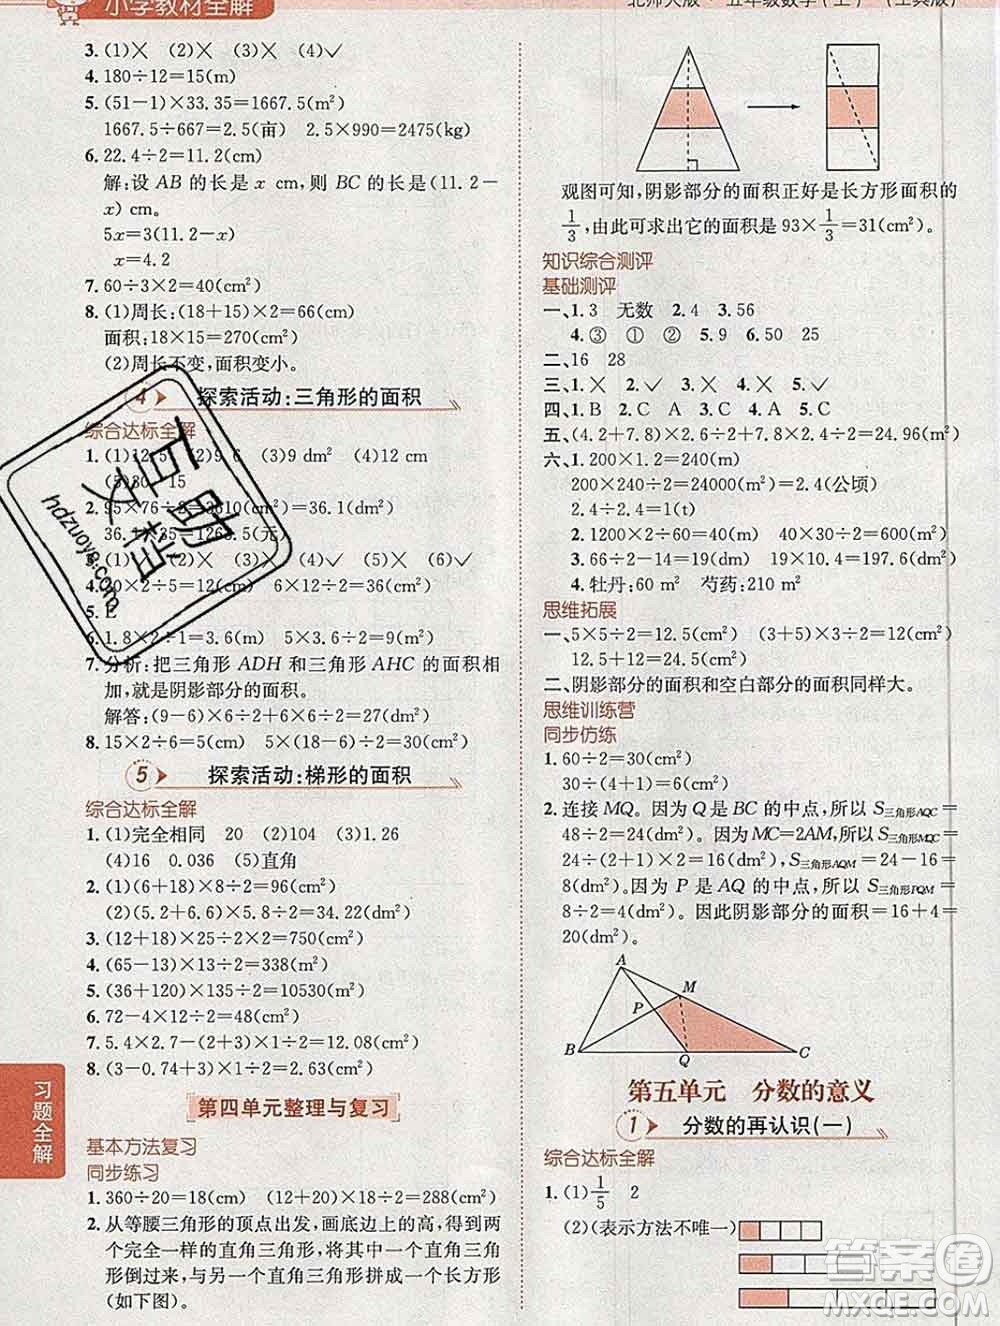 小学教材全解
北师大版·五年级数学(上) (工具版)
3. (1)╳ (2)╳ (3)╳ (4)✓
4. 180÷12=15(m)
5. (51-1)×33.35=1667.5(m²)
1667.5÷667=2.5(亩) 2.5×990=2475(kg)
6. 22.4÷2=11.2(cm)
解:设 AB 的长是 x cm,则 BC 的长是(11.2-
x) cm。
5x=3(11.2-x)
x=4.2
7. 60÷3×2=40(cm²)
8. (1)周长:(18+15)×2=66(cm)
面积:18×15=270(cm²)
(2)周长不变,面积变小。
4 探索活动:三角形的面积
综合达标全解
1. (1)12.5 (2)9.6 (3)9 dm² (4)12 cm
(5)30 15
2. 95×76÷2=3610(cm²)=36.1(m²)
36.1×35=1263.5(元)
3. (1)✓ (2)╳ (3)╳ (4)✓ (5)╳ (6)✓
4. 20×2÷5=8(cm) 6×12÷2=36(cm²)
5. E
6. 1.8×2÷1=3.6(m) 5×3.6÷2=9(m²)
7. 分析:把三角形 ADH 和三角形 AHC 的面积相
加,就是阴影部分的面积。
解答:(9-6)×6÷2+6×6÷2=27(dm²)
8. 15×2÷2=15(dm²)
5 探索活动:梯形的面积
综合达标全解
1. (1)完全相同 20 (2)104 (3)1.26
(4)16 0.036 (5)直角
2. (1)(6+18)×8÷2=96(cm²)
(2)(5.2+6.6)×5÷2=29.5(cm²)
3. (12+18)×25÷2×2=750(cm²)
4. (65-13)×13÷2=338(m²)
5. (36+120)×135÷2=10530(m²)
6. (4+12)×6÷2=48(cm²)
7. 5.4×2÷(2.4-1.5)=12(dm)
8. (3-0.74+3)×1.8÷2=4.734(m²)
第四单元整理与复习
基本方法复习
同步练习
1. 360÷20=18(cm) (12+20)×18÷2=288(cm²)
2. 从等腰三角形的顶点出发,画底边上的高,得到两
个完全一样的直角三角形,将其中一个直角三角
形倒过来,与另一个直角三角形拼成一个长方形
(如下图)。
习题全解
观图可知,阴影部分的面积正好是长方形面积的
1/3,由此可求出它的面积是 93×1/3=31(cm²)。
知识综合测评
基础测评
一、1. 3 无数 2. 4 3. 56
4. ③ ① ② 5. 9 6. 50 25
二、16 28
三、1. ╳ 2. ╳ 3. ╳ 4. ✓ 5. ✓
四、1. B 2. C A 3. A 4. B 5. C
五、(4.2+7.8)×2.4÷2+7.8×2.4÷2=24.96(m²)
六、1. 200×1.2=240(m)
200×240÷2=24000(m²)=2.4(公顷)
2.4÷2.4=1(t)
2. 1200×2÷40=60(m) 30×40÷2=600(m²)
3. 66÷2-14=19(dm) 19×10.4=197.6(dm²)
4. 牡丹:60 m² 芍药:210 m²
思维拓展
一、5×5÷2=12.5(cm²) (3+5)×3÷2=12(cm²)
12.5+12=24.5(cm²)
二、阴影部分的面积和空白部分的面积同样大。
思维训练营
同步仿练
1. 60÷2=30(cm²)
30÷(4+1)=6(cm²)
2. 连接 MQ。因为 Q 是 BC 的中点,所以 S三角形AQC=
48÷2=24(dm²)。因为 MC=2AM,所以 S三角形MQC=
24÷(2+1)×2=16(dm²),S三角形AQM=24-16=
8(dm²)。因为 P 是 AQ 的中点,所以 S三角形PQM=
8÷2=4(dm²)。因此阴影部分的面积=16+4=
20(dm²)。
A
M
P
B
Q
C
第五单元 分数的意义
1 分数的再认识(一)
综合达标全解
1. (1)1/5 2
(2)(表示方法不唯一)
互助文档
hdzuoye.com
答案圈
MXQE.COM